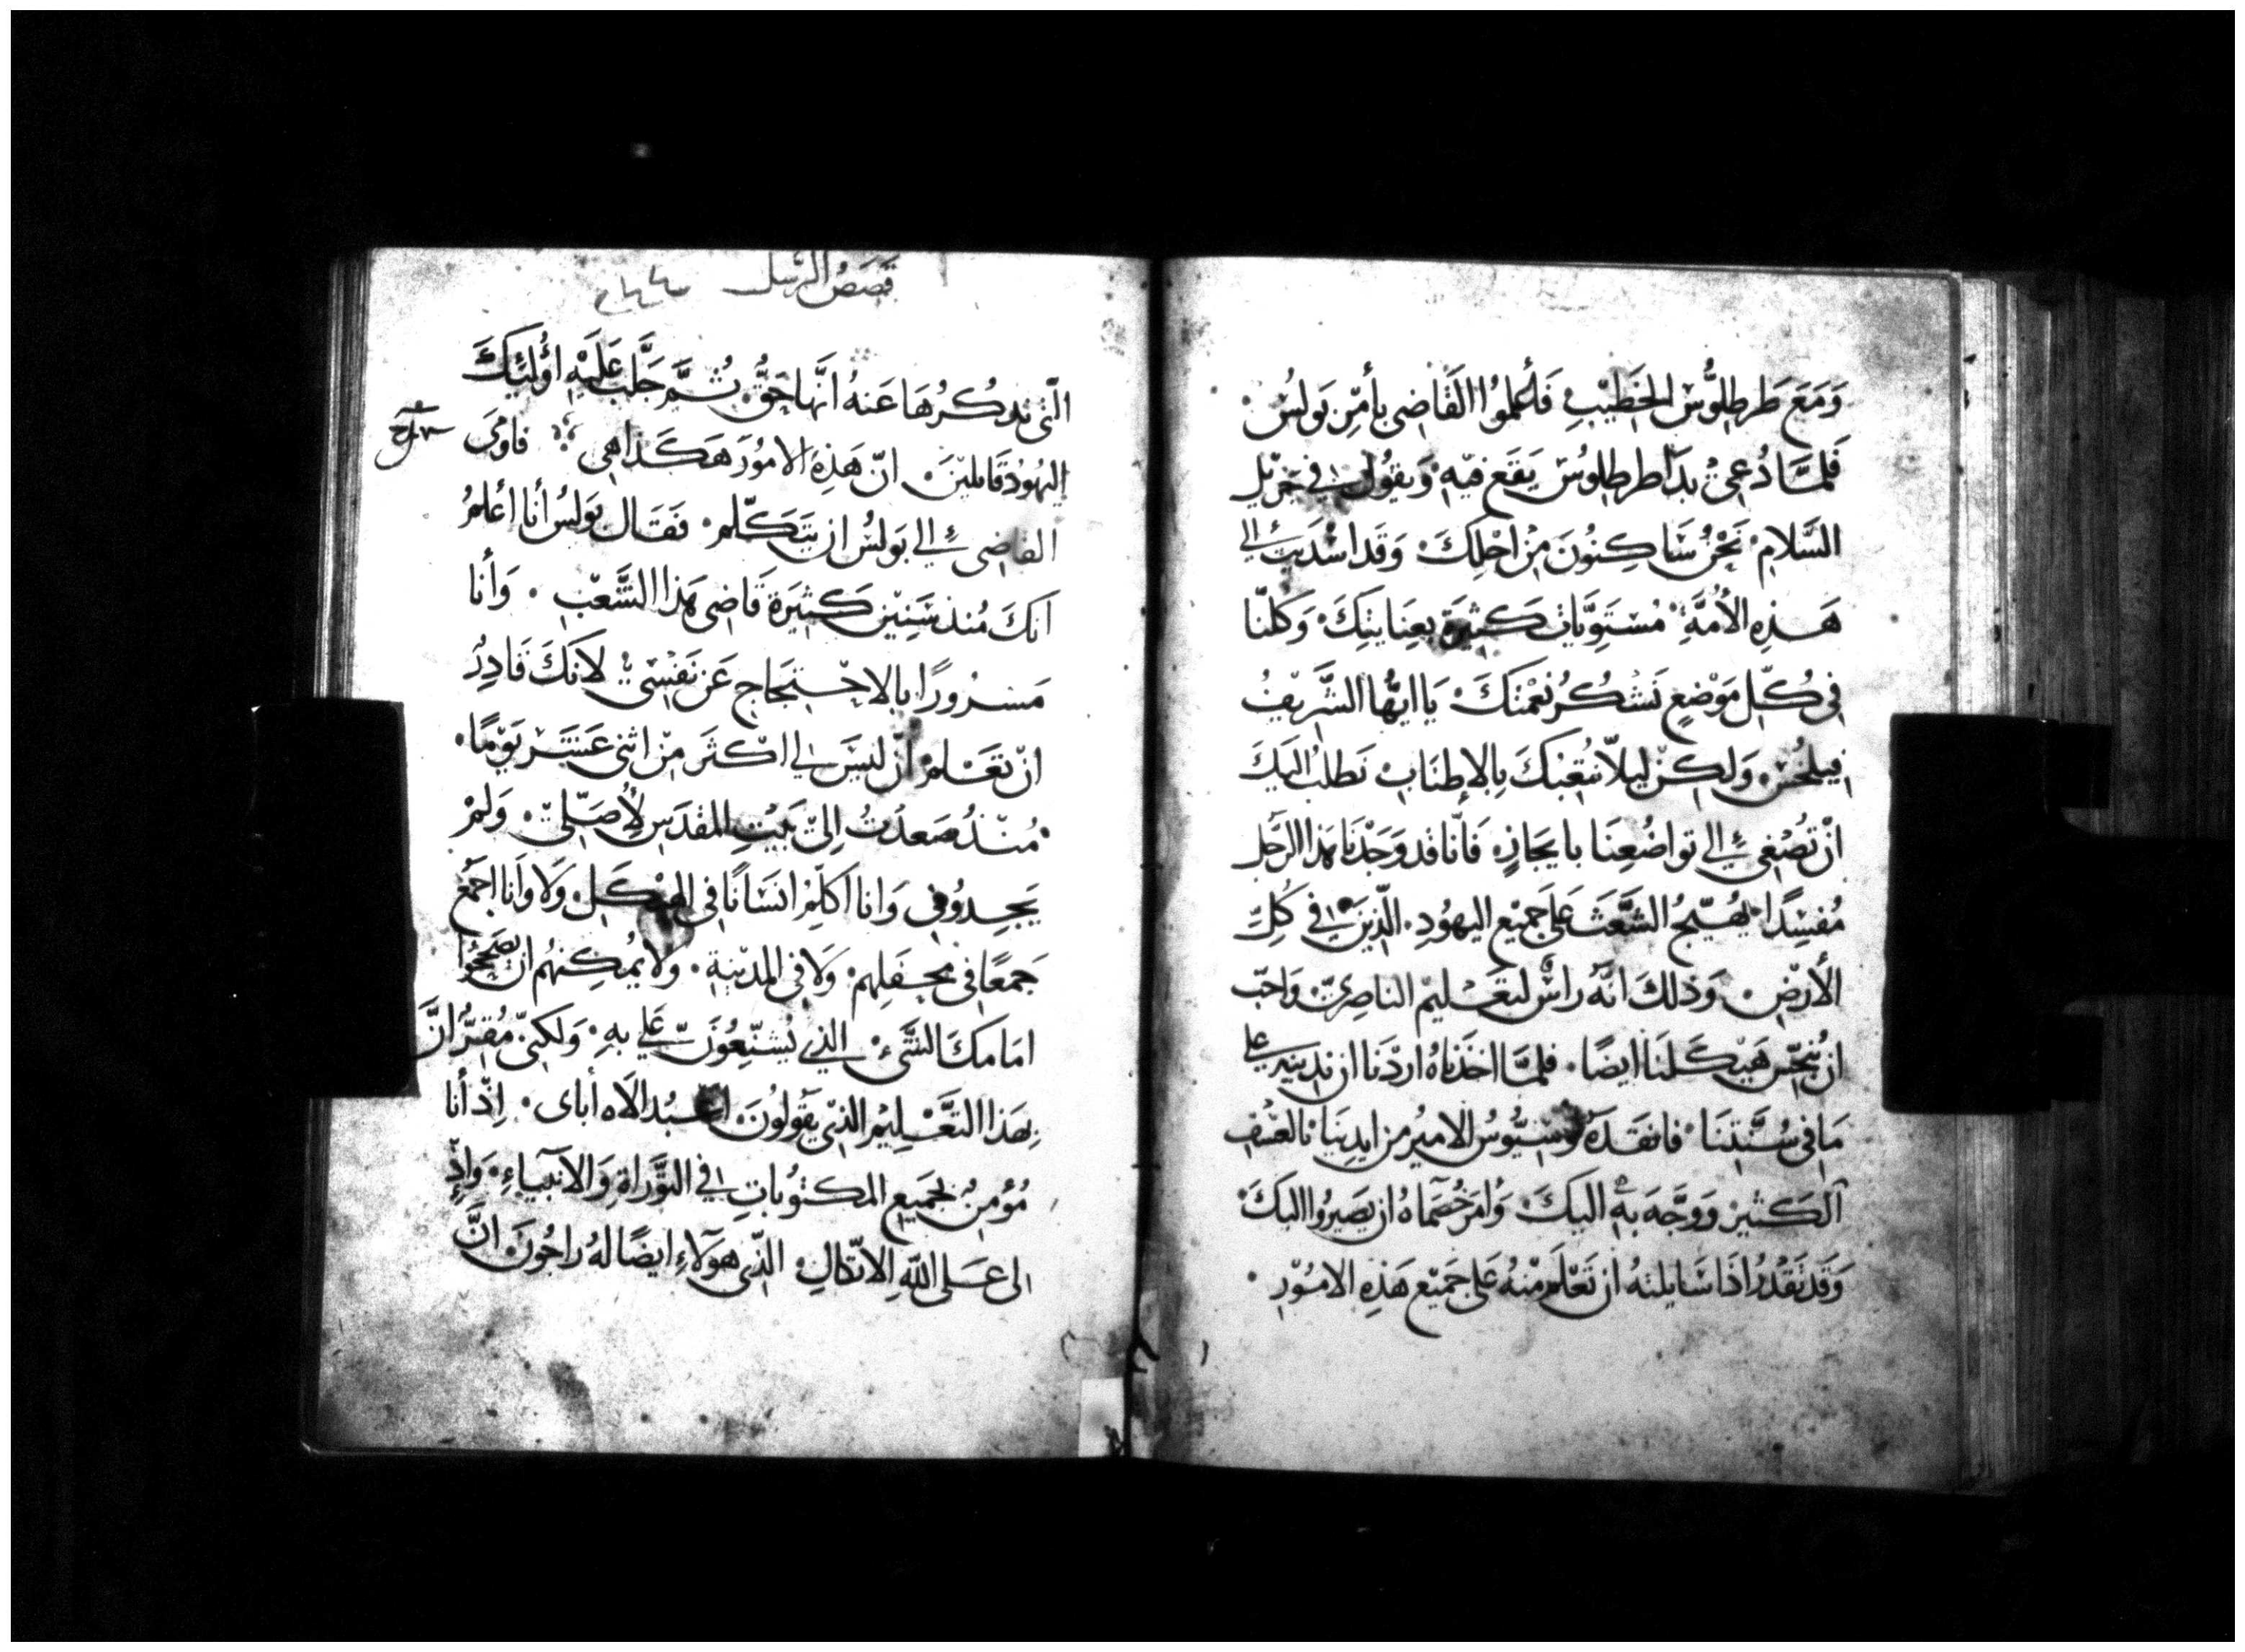 وَمَعَ طَرطِلُّوس الخَطيْبِ فَأَعلموُا القَاضِى بأمْرِ بَولُسْ
فَلمَّا دُعِىَ بدَا طرطلِوسُ يَقَع فيْهِ وَيقوُل في جَزيْل
السَّلامِ نَحْنُ سَاكِنُونَ مِنْ اجْلِكَ وَقَد اسْدَيت إلى
هَذِهِ الأُمَّةِ مُسْتَوِيَّات كثيرَة بعِنَايتِكَ وَكلنّا
فى كُلّ مَوْضعٍ نَشْكُر نعْمتكَ يَا ايُّها الشَّريفُ
فيلخُس وَلكِنْ ليلّا نتُعِبَكَ بِالإطنَابِ نَطلبُ اليَكَ
انْ تُصْغى إلى تواضُعِنَا بايجَازٍ فَانّا قد وَجَدْنَا هَذا الرَّجل
مُفسِدًا يُهَيّجُ الشَّغَثَ عَلَى جَميْع اليهوُدِ الّذِينَ في كُلّ
الأرْضِ وَذلكَ انَّهُ راسٌ لتعَليْم الناصِرىّ وَاحَبّ
ان يُنجّس هَيْكَلنَا ايضًا فلمَّا اخذنَاهُ ارَدْنَا ان ندينه على
مَا فى سُنَّتِنَا فانقَدَهُ لوسِيُّوسُ الاميرُ من ايدِينَا بالعُنْفِ
الكَثيْر وَوَجَّه بِهِ اليكَ وَامَرَ خُصَمَاهُ ان يَصيرُوا اليكَ
وَقد تَقدُر اذَا سَايلتهُ ان تَعْلَم مِنْهُ عَلى جَميْع هَذِهِ الامُوْرِ
قَصَصُ الرّسُل
الّتى نذكُرُهَا عَنهُ انَّها حَقُّ ثُمَّ جَلَّبَ عَلَيْهِ اوُلئِكَ
اليَهُودُ قَايليْنَ انّ هَذِهِ الامُورَ هَكَذا هِى فاوْمَى
القاضِى إلى بَولُسُ ان يتَكلّم فَقَال بَولسُ أنا أعْلمُ
انَكَ مُنذ سَنِيْن كَثيَرة قَاضِى هَذا الشَّعْبِ وَأنَا
مَسرُورًا بالاحْتِجَاج عَن نَفْسِى لانَكَ قَادِرُ
ان تعَلم انْ ليسَ لي اكْثَر مِنْ اثنى عَشَر يَوْمًا
مُنْذُ صَعدْتُ اِلَى بَيْتِ المقدَسِ لأُصَلّى وَلمْ
يَجِدوُنى وَانا اكلّمُ انسَانًا فى الهيْكَلِ وَلا وَانا اجمَعُ
جَمعًا فى محفَلِهمْ وَلا فى المدِيْنةِ وَلا يُمكِنهُم ان يصَححُوا
امَامكَ الشَىْءَ الذِي يُشنّعُونَ عَلَي بهِ وَلكنىّ مُقِرُّ انَّ
بِهَذا التعَّليْمُ الذِى يقَولُونَ اعَبُد الاه أباى اِذْ أنا
مُؤمِنُ بجَميَع المكتوُبَاتِ في التوَّراةِ وَالانبيَاءِ وَاِذْ
لى عَلى اللهِ الاتّكالِ الذّى هَوَلاءِ ايضًا لهُ راجُونَ انَّ